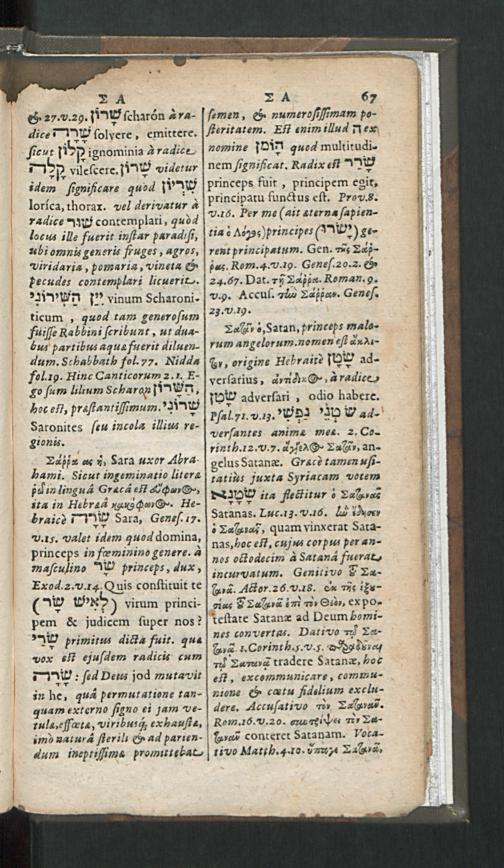 Σ Α
& 27.v.29. שָׁרוֹן scharón à ra-
dice שָׁרָה solvere, emittere.
sicut קָלוֹן ignominia à radice
קָלָה vilescere. שָׁרוֹן videtur
idem significare quod שִׁרְיוֹן
lorica, thorax. vel derivatur à
radice שׁוּר contemplari, quòd
locus ille fuerit instar paradisi,
ubi omnis generis fruges, agros,
viridaria, pomaria, vineta &
pecudes contemplari licuerit.
יַיִן הַשָּׁירוֹנִי vinum Scharoni-
ticum, quod tam generosum
fuisse Rabbini scribunt, ut dua-
bus partibus aquæ fuerit diluen-
dum. Schabbath fol.77. Nidda
fol.19. Hinc Canticorum 2.1. E-
go sum lilium Scharon הַשָּׁרוֹן,
hoc est, præstantissimum. שָׁרוֹנִי
Saronites seu incola illius re-
gionis.
Σάῤῥα ας ἡ, Sara uxor Abra-
hami. Sicut ingeminatio literæ
ῥῶ in linguâ Græcâ est εὔφωνος,
ita in Hebræâ κακόφωνος. He-
braicè שָׂרָה Sara, Genes.17.
v.15. valet idem quod domina,
princeps in fœminino genere. à
masculino שַׂר princeps, dux,
Exod.2.v.14. Quis constituit te
(לְאִישׁ שַׂר) virum princi-
pem & judicem super nos?
שָׂרַי primitus dicta fuit. quæ
vox est ejusdem radicis cum
שָׂרָה: sed Deus jod mutavit
in he, quâ permutatione tan-
quam externo signo ei jam ve-
tulæ, effœtæ, viribusq́; exhaustæ,
imò naturâ sterili & ad parien-
dum ineptissimæ promittebat
Σ Α 67
semen, & numerosissimam po-
steritatem. Est enim illud ה ex
nomine הָמוֹן quod multitudi-
nem significat. Radix est שָׂרַר
princeps fuit, principem egit,
principatu functus est. Prov.8.
v.16. Per me (ait æterna sapien-
tia ὁ Λόγος) principes (יָשֹׂרוּ) ge-
rent principatum. Gen. τῆς Σάῤ-
ῥας. Rom.4.v.19. Genes.20.2. &
24.67. Dat. τῇ Σάῤῥᾳ. Roman.9.
v.9. Accus. τὴν Σάῤῥαν. Genes.
23.v.19.
Σατᾶν ὁ, Satan, princeps malo-
rum angelorum. nomen est ἄκλι-
τον, origine Hebraicè שָׂטָן ad-
versarius, ἀντίδικος, à radice
שָׂטַן adversari, odio habere.
Psal.71.v.13. שֹׂטְנֵי נַפְשִׁי ad-
versantes animæ meæ. 2. Co-
rinth.12.v.7. ἄγγελος Σατᾶν, an-
gelus Satanæ. Græcè tamen usi-
tatiùs juxta Syriacam vocem
שָׂטָנָא ita flectitur ὁ Σατανᾶς
Satanas. Luc.13.v.16. ἣν ἔδησεν
ὁ Σατανᾶς, quam vinxerat Sata-
nas, hoc est, cujus corpus per an-
nos octodecim à Satanâ fuerat
incurvatum. Genitivo τοῦ Σα-
τανᾶ. Actor.26.v.18. ἐκ τῆς ἐξου-
σίας τοῦ Σατανᾶ ἐπὶ τὸν Θεὸν, ex po-
testate Satanæ ad Deum homi-
nes convertas. Dativo τῷ Σα-
τανᾷ. 1.Corinth.5.v.5. παραδοῦναι
τῷ Σατανᾷ tradere Satanæ, hoc
est, excommunicare, commu-
nione & cœtu fidelium exclu-
dere. Accusativo τὸν Σατανᾶν.
Rom.16.v.20. συντρίψει τὸν Σα-
τανᾶν conteret Satanam. Voca-
tivo Matth.4.10. ὕπαγε Σατανᾶ,